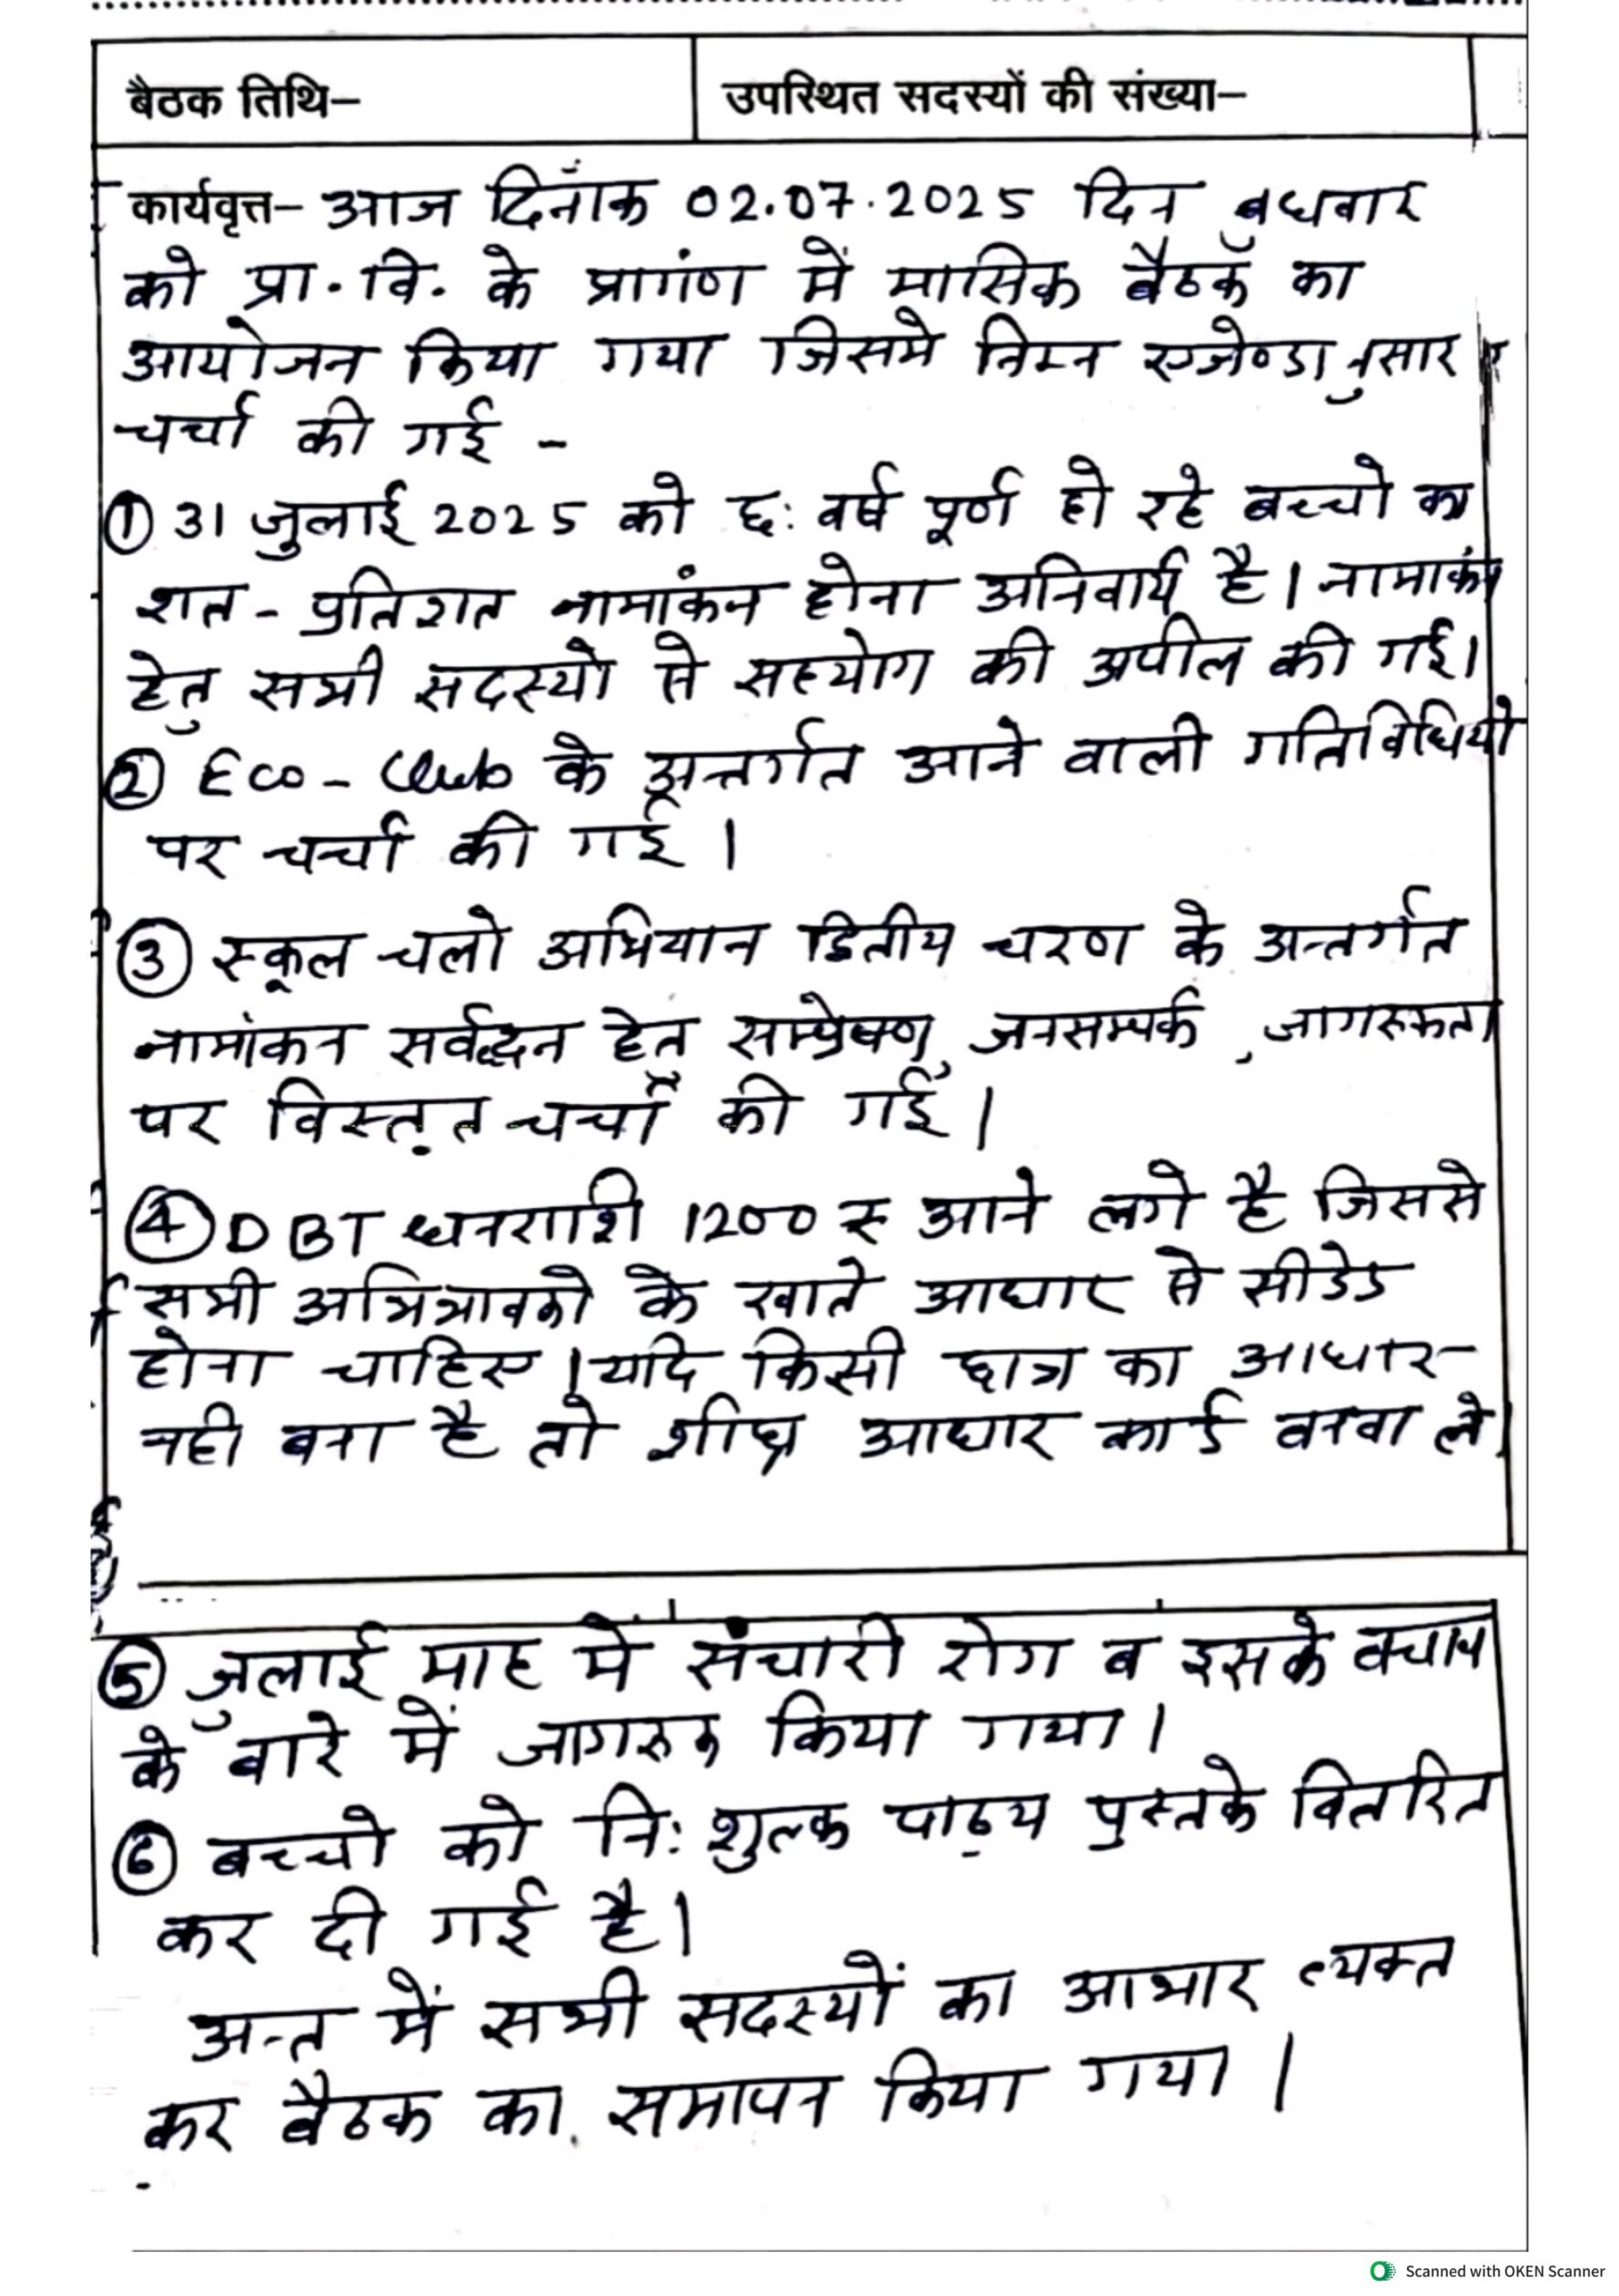 बैठक तिथि–
उपस्थित सदस्यों की संख्या–
कार्यवृत्त– आज दिनाँक 02.07.2025 दिन बुधवार
को प्रा.वि. के प्रागंण में मासिक बैठक का
आयोजन किया गया जिसमे निम्न एजेण्डानुसार
चर्चा की गई -
① 31 जुलाई 2025 को छः वर्ष पूर्ण हो रहे बच्चो का
शत - प्रतिशत नामांकन होना अनिवार्य है। नामांकन
हेतु सभी सदस्यो से सहयोग की अपील की गई।
② Eco - Club के अन्तर्गत आने वाली गतिविधियो
पर चर्चा की गई ।
③ स्कूल चलो अभियान द्वितीय चरण के अन्तर्गत
नामांकन सर्वद्धन हेतु सम्प्रेषण, जनसम्पर्क, जागरूकता
पर विस्तृत चर्चा की गई ।
④ DBT धनराशि 1200 रू आने लगे है जिससे
सभी अभिभावको के खाते आधार से सीडेड
होना चाहिए । यदि किसी छात्र का आधार
नही बना है तो शीघ्र आधार कार्ड बनवा ले।
⑤ जुलाई माह में संचारी रोग व इसके बचाव
के बारे में जागरूक किया गया ।
⑥ बच्चो को निः शुल्क पाठ्य पुस्तके वितरित
कर दी गई है।
अन्त में सभी सदस्यों का आभार व्यक्त
कर बैठक का समापन किया गया ।
Scanned with OKEN Scanner